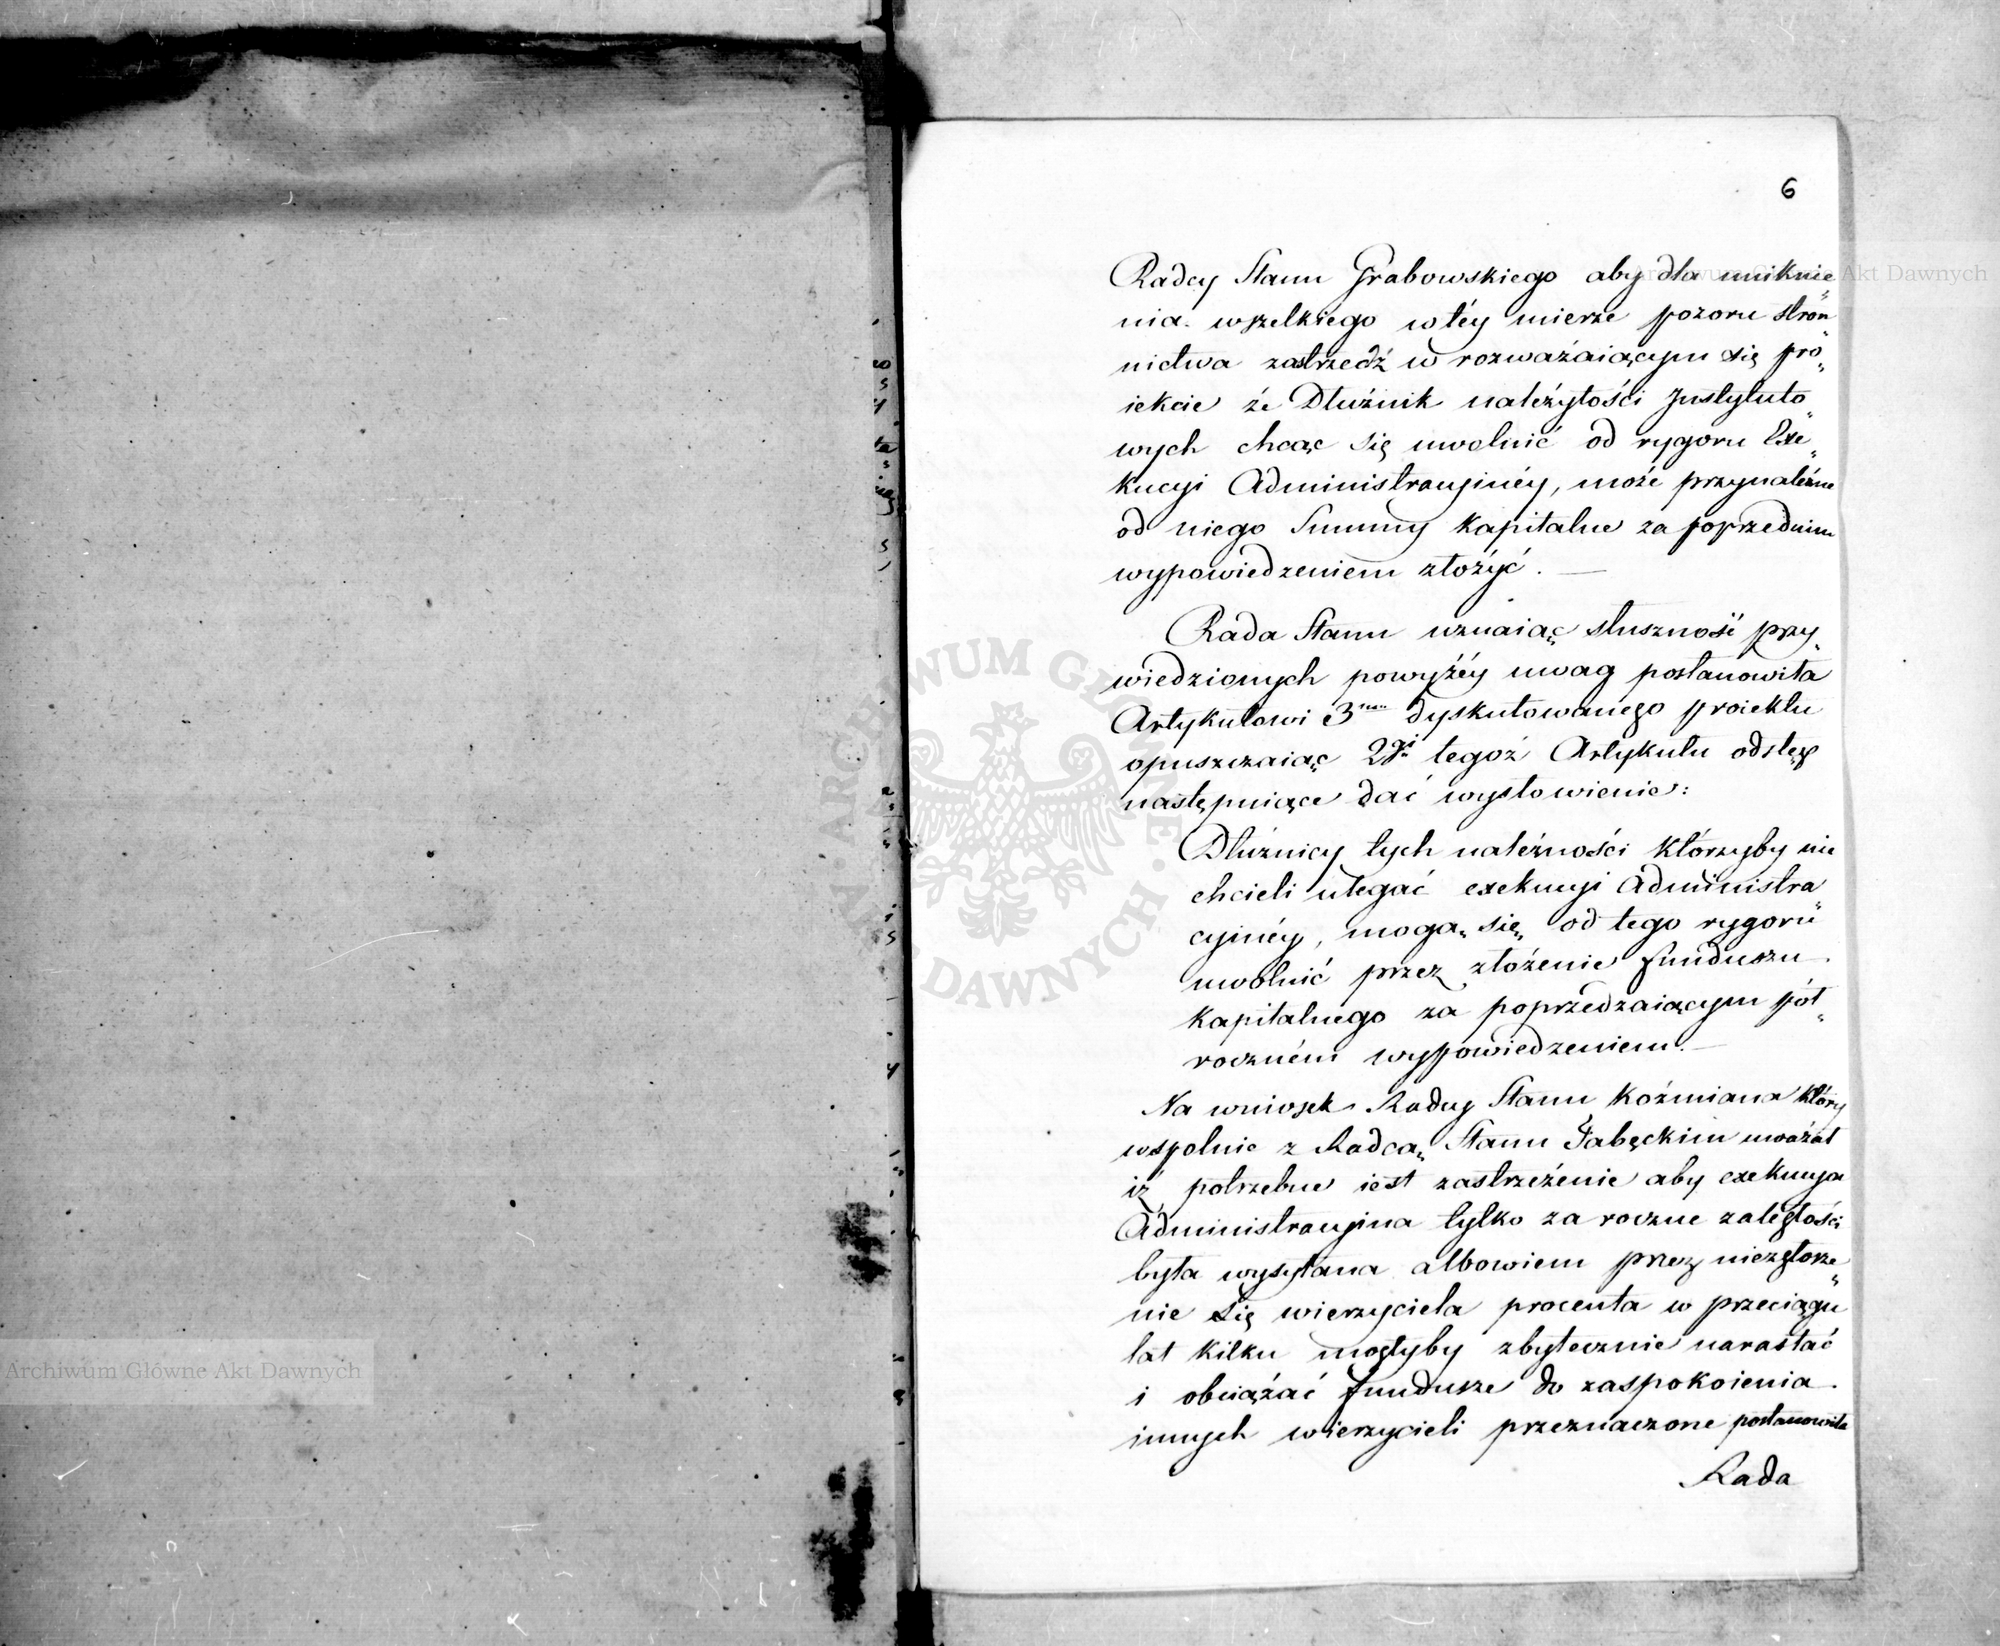 6
Radcy Stanu Grabowskiego aby dla uniknie„
nia wszelkiego w téy mierze pozoru stron„
nictwa zastrzedź w rozważaiącym się pro„
iekcie że Dłużnik należytości Instytuto„
wych chcąc się uwolnić od rygoru Exe„
kucyi Administracyinéy, może przynależne
od niego Summy kapitalne za poprzednim
wypowiedzeniem złożyć. —
Rada Stanu uznaiąc słuszność przy„
wiedzionych powyżéy uwag postanowiła
Artykułowi 3mu dyskutowanego proiektu
opuszczaiąc 2gi tegoż Artykułu odstęp
następuiące dać wysłowienie:
Dłużnicy tych należności którzyby nie
chcieli ulegać exekucyi Administra„
cyinéy, mogą się od tego rygoru
uwolnić przez złożenie funduszu
kapitalnego za poprzedzaiącym pół„
roczném wypowiedzeniem. —
Na wniosek Radcy Stanu Koźmiana który
wspolnie z Radcą Stanu Jabęckim uważał
iż potrzebne iest zastrzeżenie aby exekucya
Administracyina tylko za roczne zaległości
była wysyłana albowiem przez niezgłosze„
nie się wierzyciela procenta w przeciągu
lat kilku mogłyby zbytecznie narastać
i obciążać fundusze do zaspokoienia
innych wierzycieli przeznaczone postanowiła
Rada
Archiwum Główne Akt Dawnych
Archiwum Główne Akt Dawnych
ARCHIWUM GŁÓWNE AKT DAWNYCH